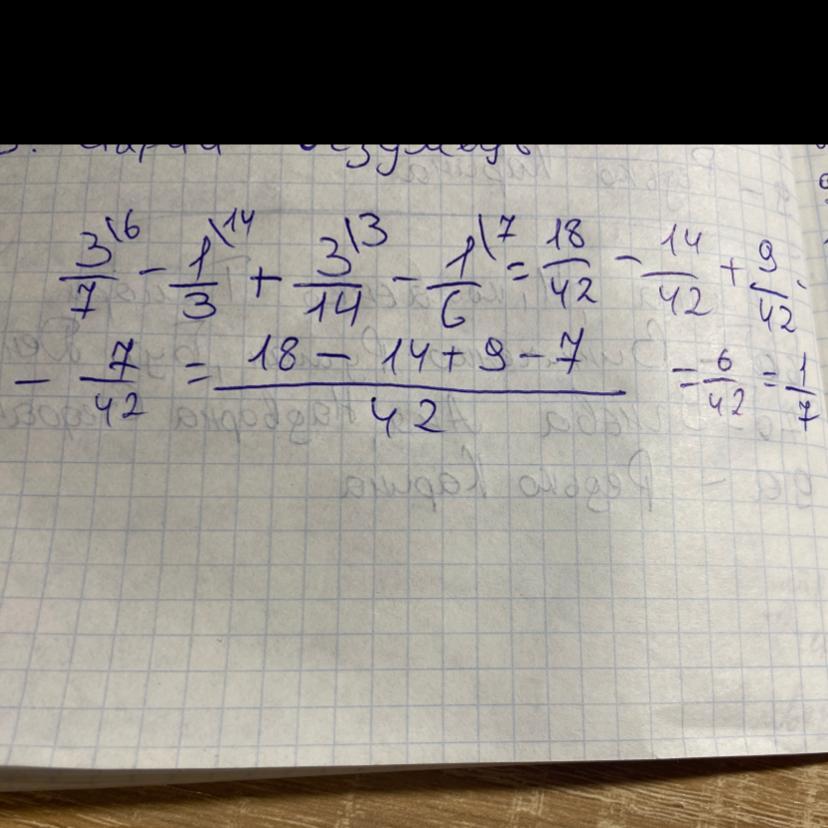 3\6/7 - 1\14/3 + 3\3/14 - 1\7/6 = 18/42 - 14/42 + 9/42 -
- 7/42 = (18 - 14 + 9 - 7)/42 = 6/42 = 1/7